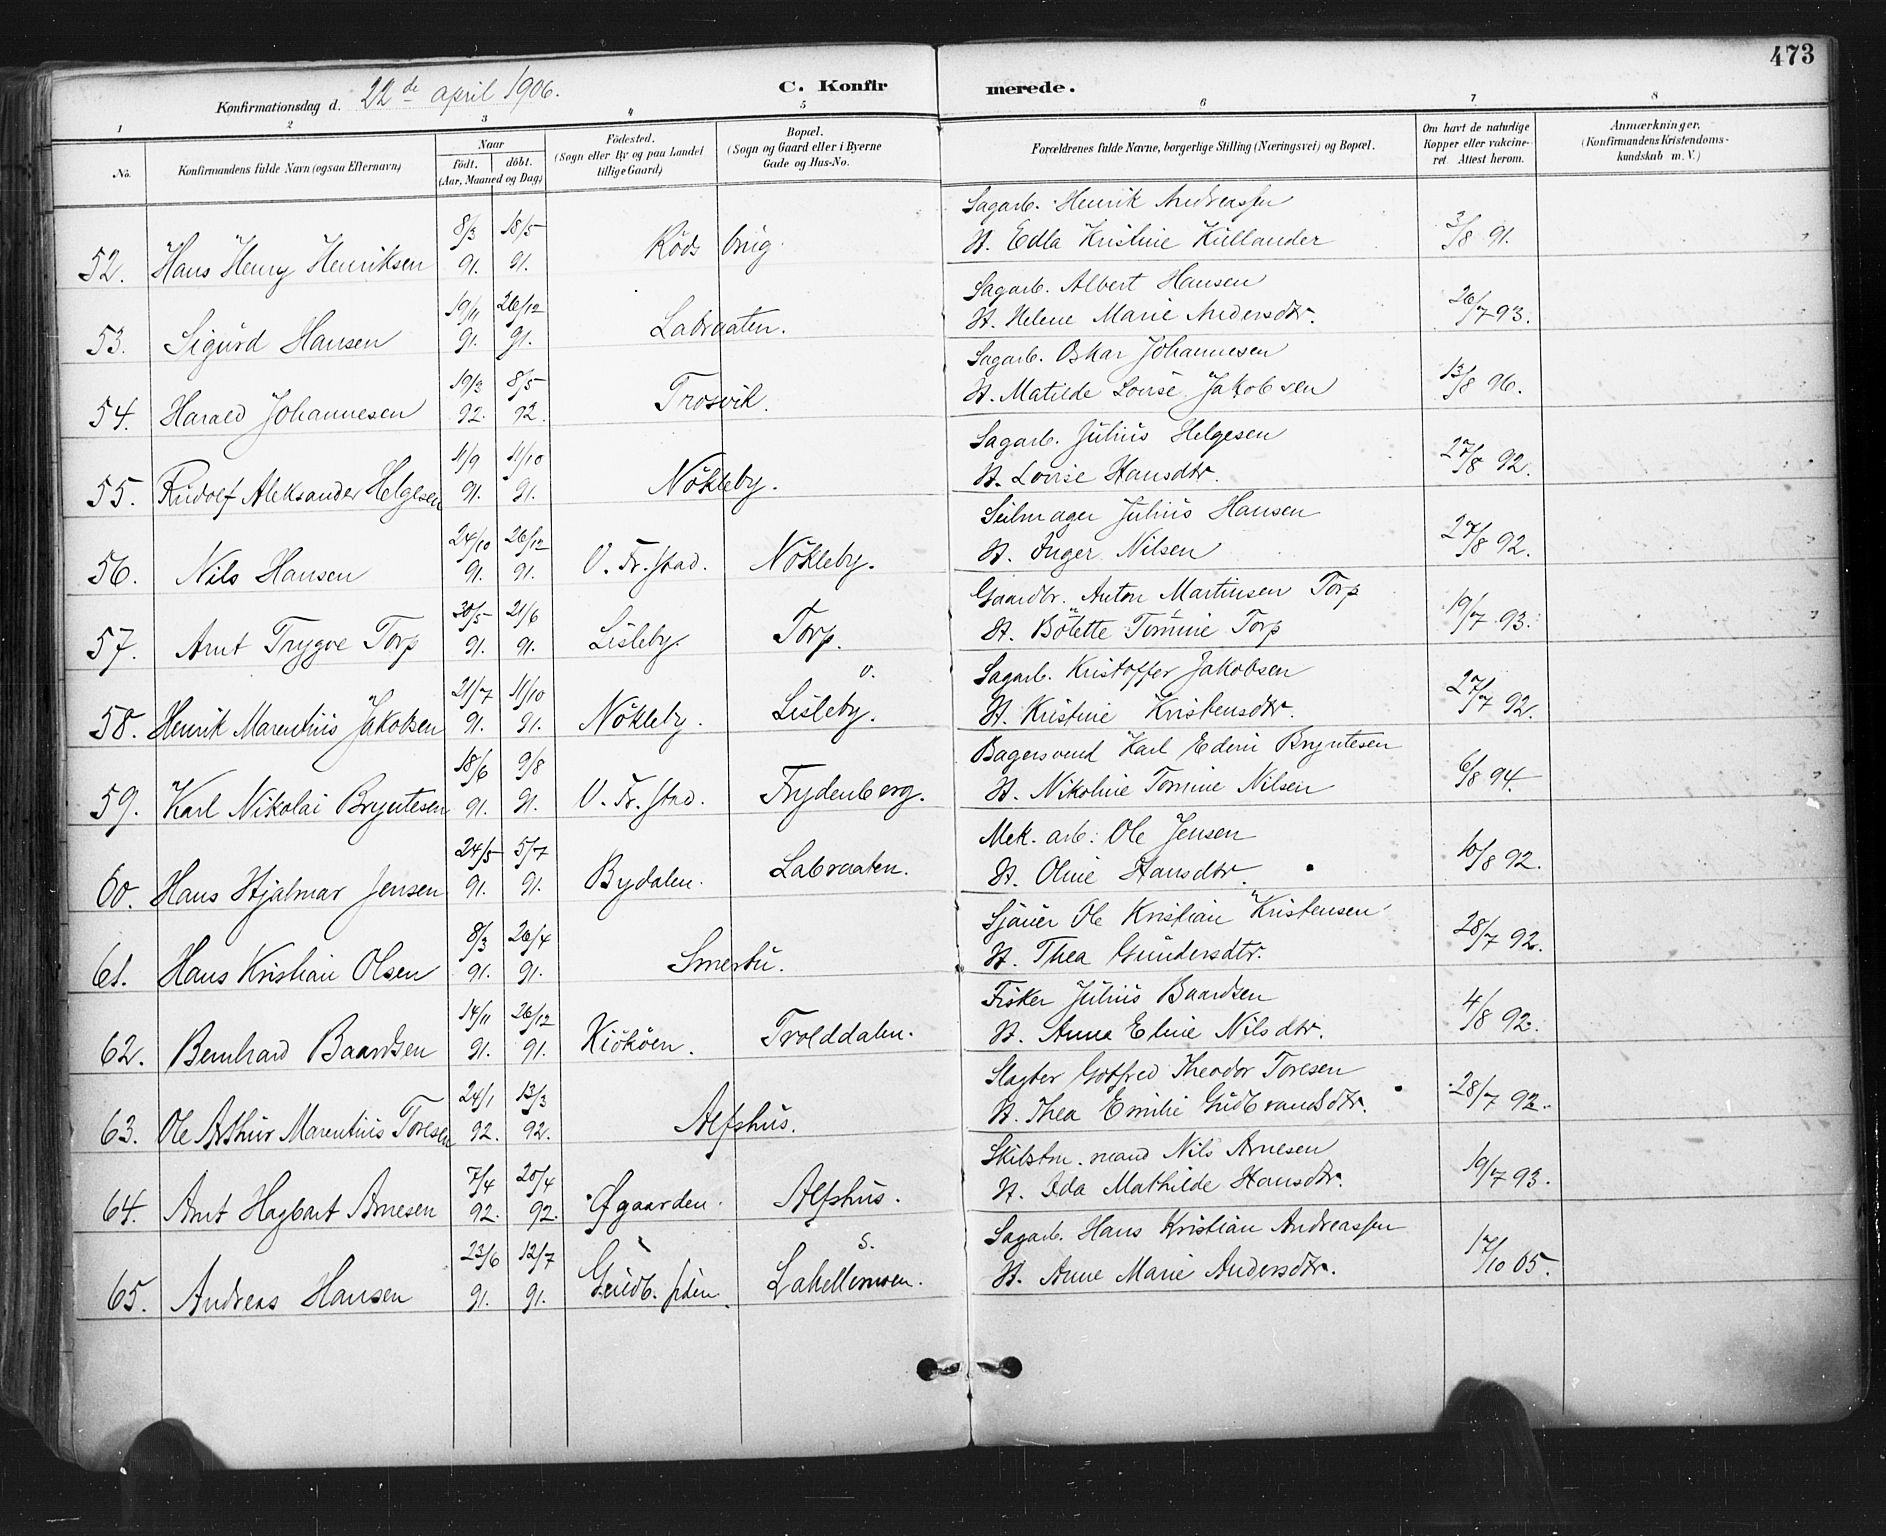 473
Konfirmationsdag d. 22de april 1906.
C. Konfirmerede.
1 2 3 4 5 6 7 8
No.
Konfirmandens fulde Navn (ogsaa Efternavn)
Naar
födt. döbt.
(Aar, Maaned og Dag)
Födested.
(Sogn eller By og paa Landet
tillige Gaard)
Bopæl.
(Sogn og Gaard eller i Byerne
Gade og Hus-No.
Forældrenes fulde Navne, borgerlige Stilling (Næringsvei) og Bopæl.
Om havt de naturlige
Kopper eller vakcine-
ret. Attest herom.
Anmærkninger.
(Konfirmandens Kristendoms-
kundskab m. V.)
52. Hans Henry Henriksen 8/3 91. 18/5 91. Röds brug Sagarb. Henrik Andreassen
H. Edla Kristine Kullander 3/8 91.
53. Sigurd Hansen 19/11 91. 26/12 91. Labraaten. Sagarb. Albert Hansen
H. Helene Marie Andersdtr. 26/7 93.
54. Harald Johannesen 19/3 92. 8/5 92. Trosvik. Sagarb. Oskar Johannesen
H. Matilde Lovise Jakobsen 13/8 96.
55. Rudolf Aleksander Helgesen 11/9 91. 11/10 91. Nökleby. Sagarb. Julius Helgesen
H. Lovise Hansdtr. 27/8 92.
56. Nils Hansen 24/10 91. 26/12 91. V. Fr.stad. Nökleby. Seilmager Julius Hansen
H. Inger Nilsen 27/8 92.
57. Arnt Trygve Torp 30/5 91. 21/6 91. Lisleby. Torp. Gaardbr. Anton Martinsen Torp
H. Bölette Tomine Torp 19/7 93.
58. Henrik Marentius Jakobsen 21/7 91. 11/10 91. Nökleby. v. Lisleby. Sagarb. Kristoffer Jakobsen
H. Kristine Kristensdtr. 27/7 92.
59. Karl Nikolai Bryntesen 18/6 91. 9/8 91. V. Fr.stad. Frydenberg. Bagersvend Karl Edvin Bryntesen
H. Nikoline Tomine Nilsen 6/8 94.
60. Hans Hjalmar Jensen 24/5 91. 5/7 91. Bydalen. Labraaten. Mek. arb. Ole Jensen
H. Oline Hansdtr. 10/8 92.
61. Hans Kristian Olsen 8/3 91. 26/4 91. Smertu. Sjauer Ole Kristian Kristensen
H. Thea Gundersdtr. 28/7 92.
62. Bernhard Baardsen 14/11 91. 26/12 91. Kiököen. Trolddalen. Fisker Julius Baardsen
H. Anne Eline Nilsdtr. 4/8 92.
63. Ole Arthur Marentius Toresen 24/1 92. 13/3 92. Alfshus. Slagter Gotfred Theodor Toresen
H. Thea Emilie Gudbrandsdtr. 28/7 92.
64. Arnt Hagbart Arnesen 7/4 92. 20/4 92. Øgaarden. Alfshus. Skilstm. mand Nils Arnesen
H. Ida Mathilde Hansdtr. 19/7 93.
65. Andreas Hansen 23/6 91. 12/7 91. s. Sagarb. Hans Kristian Andreassen
H. Anne Marie Andersdtr. 17/10 05.